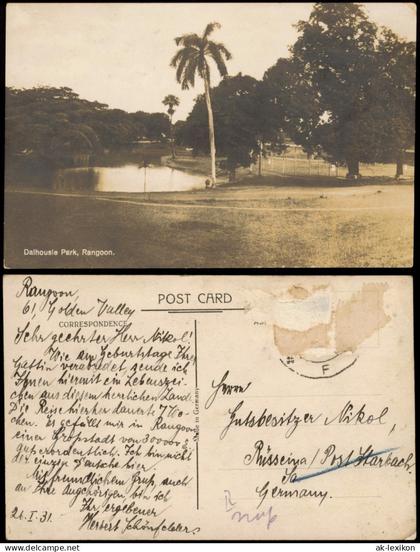 Dalhousie Park, Rangoon.
Rangoon,
61, Golden Valley
POST CARD
CORRESPONDENCE
Sehr geehrter Herr Nikol!
Wie am Geburtstage Ihrer
Gattin verabredet, sende ich
Ihnen hiermit ein Lebenszei-
chen aus diesem herrlichen Lande.
Die Reise hierher dauerte 7 Wo-
chen. Es gefällt mir in Rangoon,
einer Großstadt von 300000
außerordentlich. Ich bin nicht
der einzige Deutsche hier.
Mit freundlichem Gruß, auch
an Ihre Angehörigen, bin ich
Ihr ergebener
Herbert Schönfelder.
21.I.31.
Made in Germany
F
Herrn
Gutsbesitzer Nikol,
Rüsseina/Post Starbach
Sa
Germany.
ak-lexikon.com